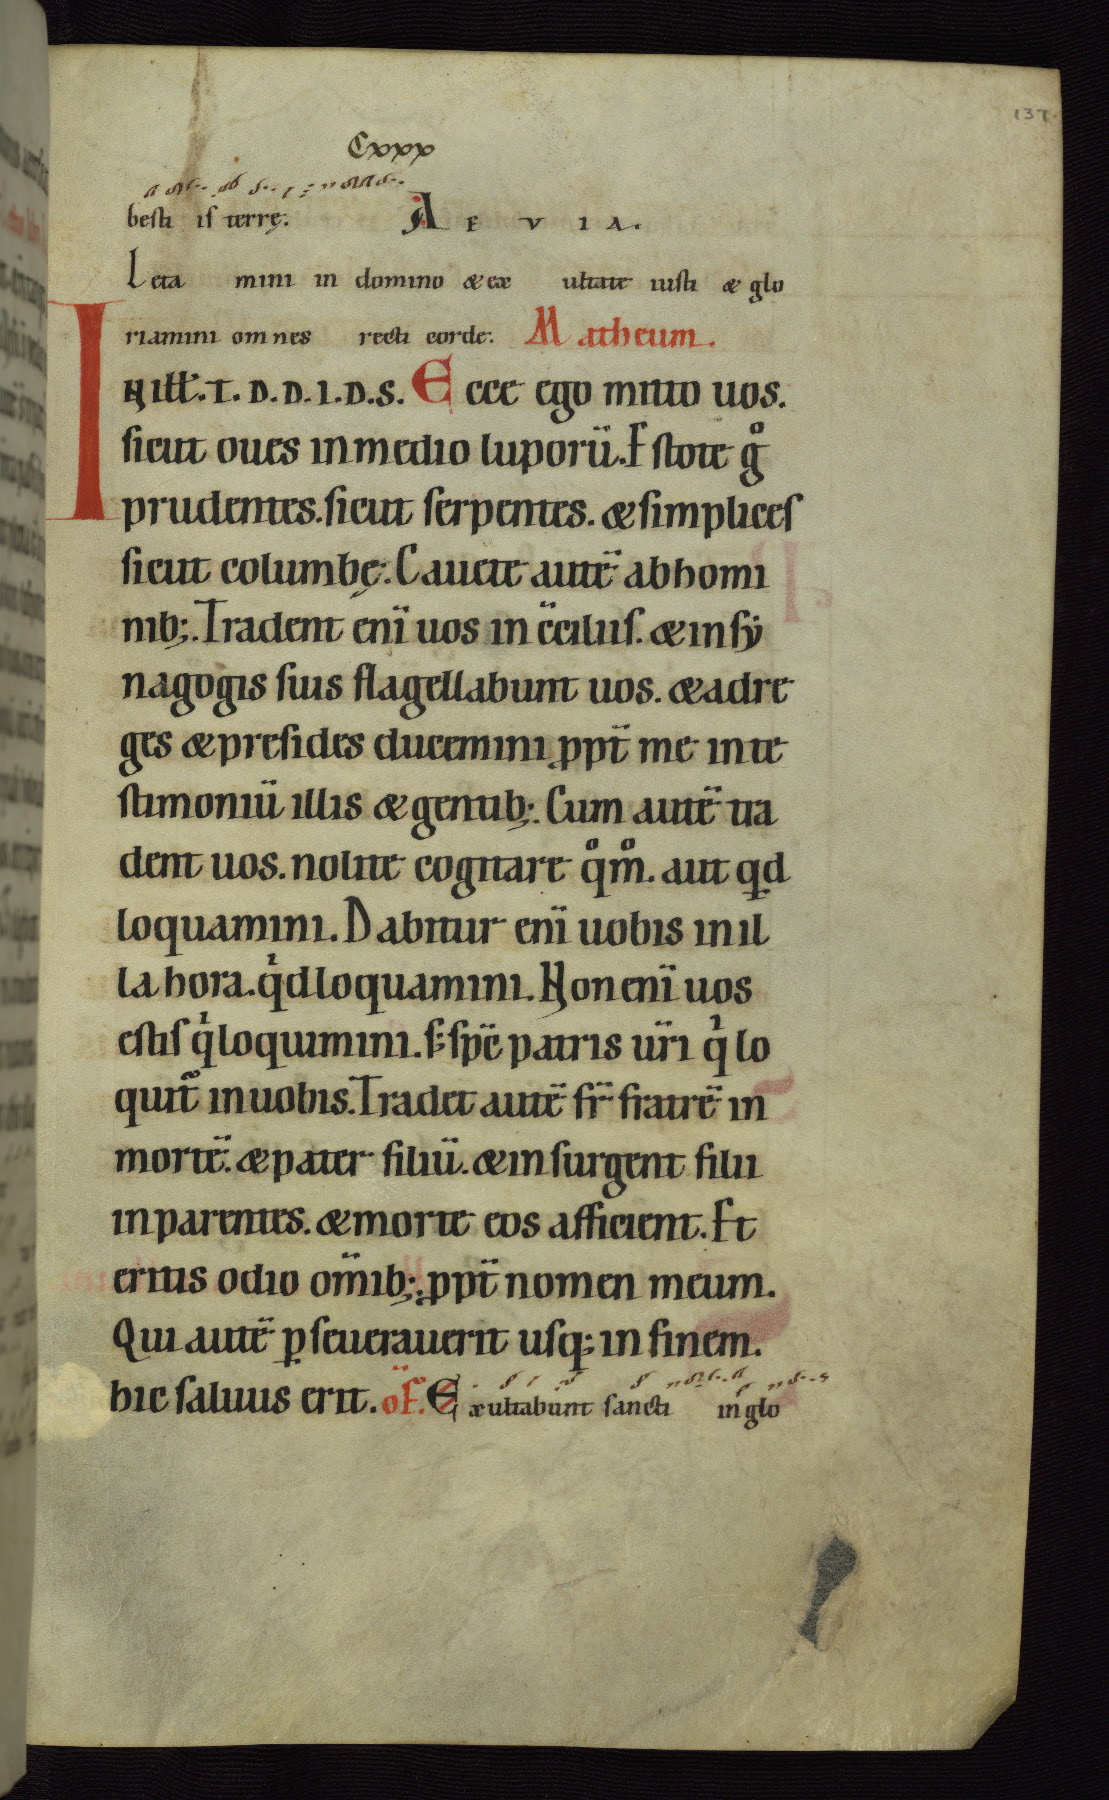 137
Cxxx
besti is terrę. A E V I A.
Leta mini in domino & ex ultate iusti & glo
riamini omnes recti corde. Matheum.
IN ILL̃. T. D. D. I. D. S. Ecce ego mitto uos.
sicut oues in medio luporū. Estote gͦ
prudentes. sicut serpentes. & simplices
sicut columbę. Cauete autē ab homi
nib;. Tradent enī uos in c̄ciliis. & in sy
nagogis suis flagellabunt uos. & ad re
ges & presides ducemini ꝓpt̄ me in te
stimoniū illis & gentib;. Cum autē tra
dent uos. nolite cogitare qͦm̊. aut qd
loquamini. Dabitur enī uobis in il
la hora. qͥd loquamini. Non enī uos
estis qͥ loquimini. s; sp̄c patris ūri qͥ lo
quit̄ in uobis. Tradet autē fr̄ fratrē in
mortē. & pater filiū. & insurgent filii
in parentes. & morte eos afficient. Et
eritis odio om̄ib; ꝓpt̄ nomen meum.
Qui autē ꝑseuerauerit usq; in finem.
hic saluus erit. oF̄. Exultabunt sancti in glo